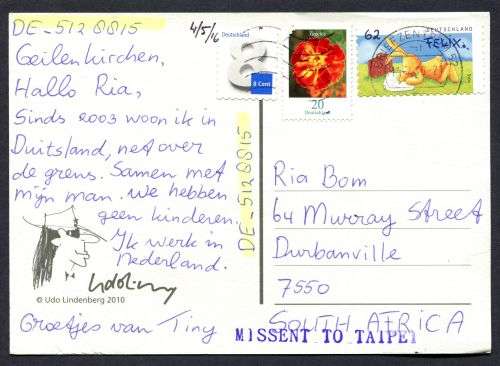 DE-5128815
Geilenkirchen,
Hallo Ria,
Sinds 2003 woon ik in
Duitsland, net over
de grens. Samen met
mijn man. We hebben
geen kinderen.
Ik werk in
Nederland.
© Udo Lindenberg 2010
Groetjes van Tiny
4/5/16
Deutschland
8
8 Cent
Tagetes
20
Deutschland
62
DEUTSCHLAND
FELIX
BRIEFZENTRUM 52
DE-5128815
Ria Bom
64 Murray Street
Durbanville
7550
SOUTH AFRICA
MISSENT TO TAIPEI